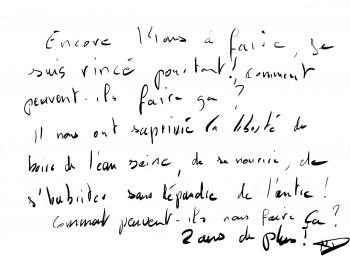 Encore 1 Kms à faire, je
suis rincé pourtant! comment
peuvent-ils faire ça?
Il nous ont saprivié la liberté de
boire de l'eau saine, de se nourrir, de
s'habiller sans dépendre de l'autre!
Comment peuvent-ils nous faire ça?
2 ans de plus!